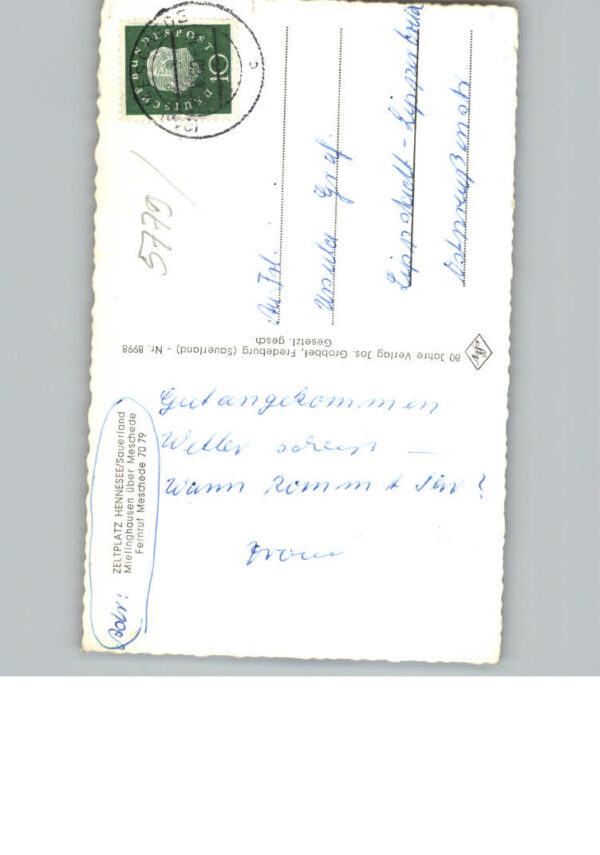 Gut angekommen
Wetter scheiß —
Wann kommt Ihr?
Adr:
ZELTPLATZ HENNESEE/Sauerland
Mielinghausen über Meschede
Fernruf Meschede 70 79
80 Jahre Verlag Jos. Grobbel, Fredeburg (Sauerland) - Nr. 8998
Gesetzl. gesch.
DEUTSCHE BUNDESPOST
10
5779
An Frl.
Ursula Graf
Lippstadt-Lipperbruch
Ostpreußenstr